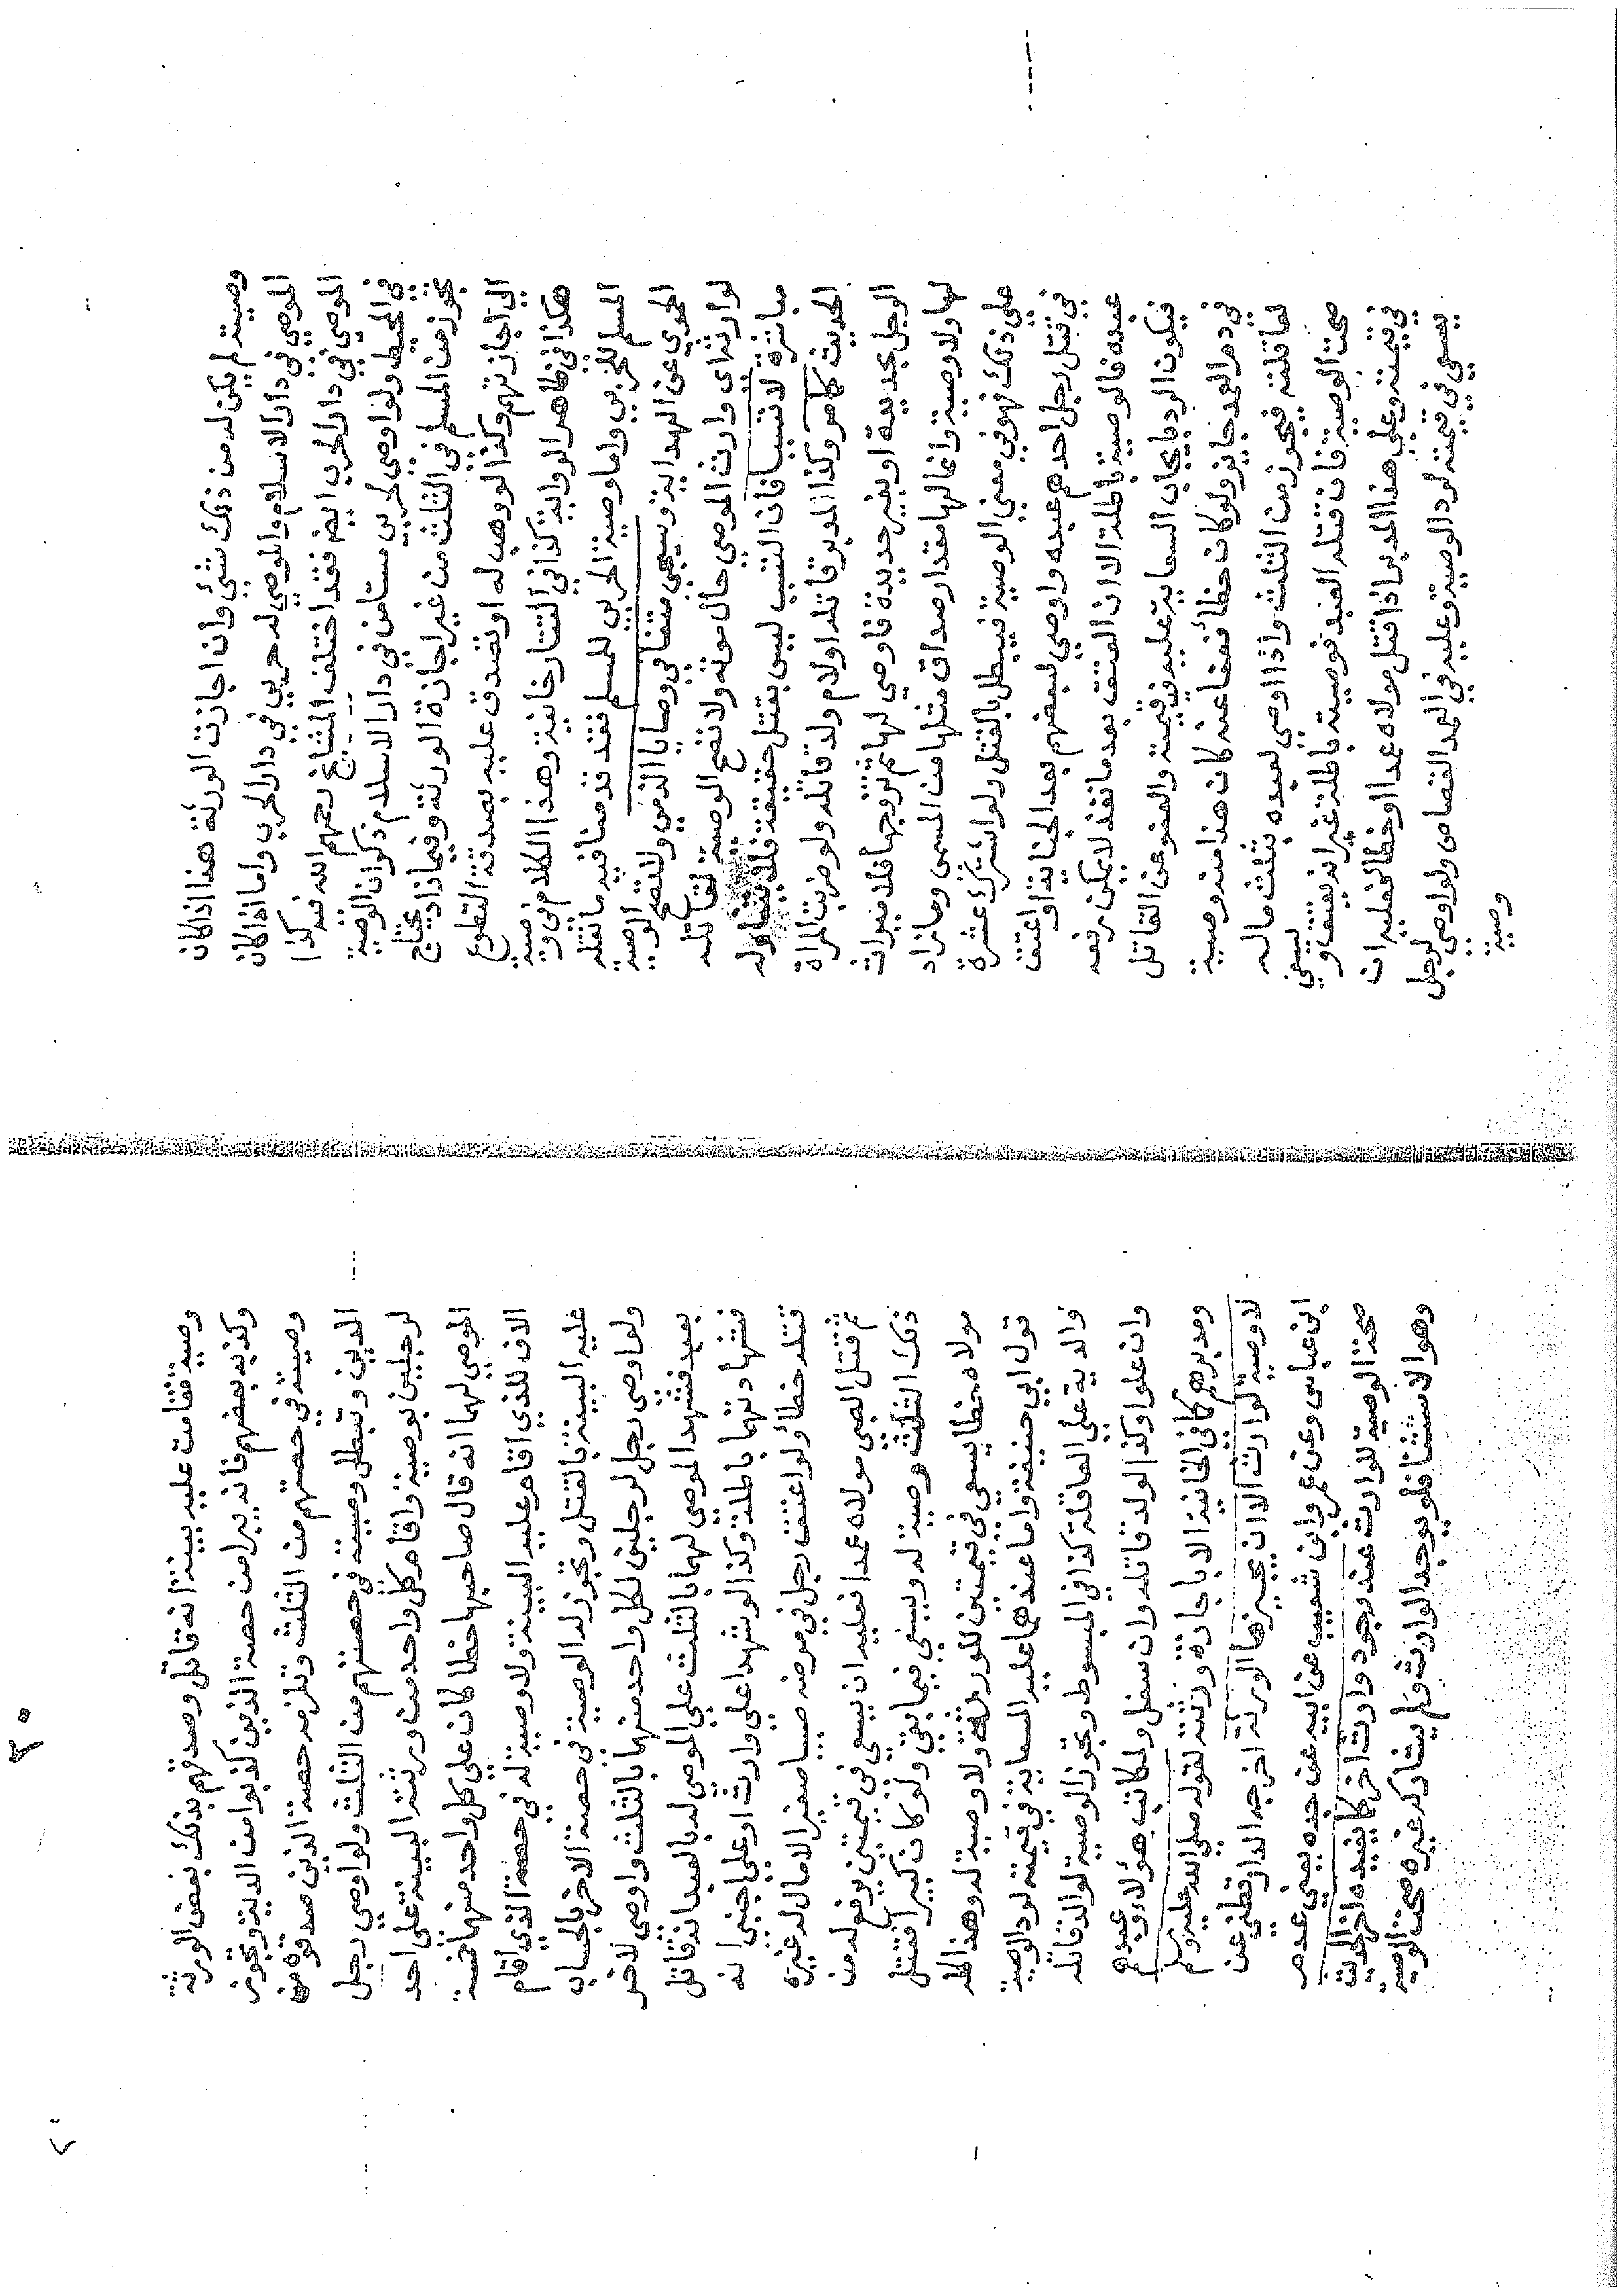 وصيته لم يكن له من ذلك شئ وان اجازت الورثة هذا اذا كان
الموصي في دار الاسلام والموصي له حربي في دار الحرب واما اذا كان
الموصي في دار الحرب ايضا فقد اختلف المشايخ رحمهم الله فيه كذا
في المحيط ولو اوصى لحربي مستامن في دار الاسلام ذكر ان الوصية
تجوز من المسلم في الثلث من غير اجازة الورثة وفيما زاد يحتاج
الى اجازتهم وكذا لو وهب له او تصدق عليه بصدقة التطوع
هكذا في ظاهر الرواية كذا في التتارخانية وهذا الكلام في وصية
المسلم للحربي واما وصية الحربي للمسلم فقد قدمنا فيه ما نقله
الحموي عن الهداية وسيجئ متنا في وصايا الذمي ولا تصح الوصية
لوارثه اى وارث الموصي حال موته ولا تصح الوصية لقاتله
مباشرة لا تسببا فان التسبب ليس بقتل حقيقة فلا يتناوله
الحديث كما مر وكذا المدبر قاتله او لام ولد قاتله ولو ضربت المراة
الرجل بحديدة او بغير حديدة فاوصي لها ثم تزوجها فلا ميراث
لها ولا وصية وانما لها مقدار صداق مثلها من المسمى وما زاد
على ذلك فهو في معنى الوصية فيبطل بالقتل ولو اشترك عشرة
في قتل رجل احدهم عبده واوصي لبعضهم بعد الجناية او اعتق
عبده فالوصية باطلة الا ان العتق بعد ما نفذ لا يمكن رفعه
فيكون الرد بايجاب السعاية عليه في قيمته والعفو عن القاتل
في دم العمد جايز ولو كان خطأ فعفا عنه كان هذا منه وصية
لعاقلته فيجوز من الثلث واذا اوصي لعبده بثلث ماله
صحت الوصية فان قتله العبد فوصيته باطلة غير انه يعتق ويسعى
في قيمته وعلى هذا المدبر اذا قتل مولاه عمدا او خطأ فعليه ان
يسعى في قيمته لرد الوصية وعليه في العمد القصاص ولو اوصى لرجل
وصية
وصية فقامت عليه بينة انه قاتل وصدقهم بذلك بعض الورثة
وكذبه بعضهم فانه يبرا من حصة الذين كذبوا من الدية وتجوز
وصيته في حصتهم من الثلث وتلزمه حصة الذين صدقوه من
الدين وتبطل وصيته في حصتهم من الثلث ولو اوصي رجل
لرجلين بوصية واقام كل واحد من ورثته البينة على احد
الموصي لهما انه قال صاحبها خطا كان على كل واحد منهما خمسة
الاف للذي اقام عليه البينة ولا وصية له في حصة الذي اقام
عليه البينة بالقتل وتجوز له الوصية في حصة الاخر بالحساب
ولو اوصى رجل لرجلين لكل واحد منهما بالثلث واوصى لاخر
بعبد فشهد الموصى لهما بالثلث على الموصى له بالعبد انه قاتل
فشهادتهما باطلة وكذا لو شهدا على وارث او على اجنبي انه
قتله خطأ ولو اعتق رجل في مرضه صبيا صغيرا لا مال له غيره
ثم قتل الصبي مولاه عمدا فعليه ان يسعى في قيمتين يرفع له من
ذلك الثلث وصية له ويسعى فيما بقي ولو كان كبيرا فقتل
مولاه خطا يسعى في قيمتين للورثة ولا وصية له وهذا كله
قول ابي حنيفة واما عندهما عليه السعاية في قيمته لرد الوصية
والدية على العاقلة كذا في المبسوط وتجوز الوصية لوالد قاتله
وان علوا وكذا لولد قاتله وان سفل ولمكاتب هؤلاء وعبدهم
ومدبرهم كما في الخانية الا باجازة ورثته لقوله صلى الله عليه وسلم
لا وصية لوارث الا ان يجيزها الورثة اخرجه الدارقطني عن
ابن عباس وعن عمرو ابن شعيب عن ابيه عن جده يعني عدم
صحة الوصية للوارث عند وجود وارث اخر كما يفيده اخر الحديث
وهو الاستثنا فلو يوجد الوارث ولم يشاركه غيره صحت الوصية